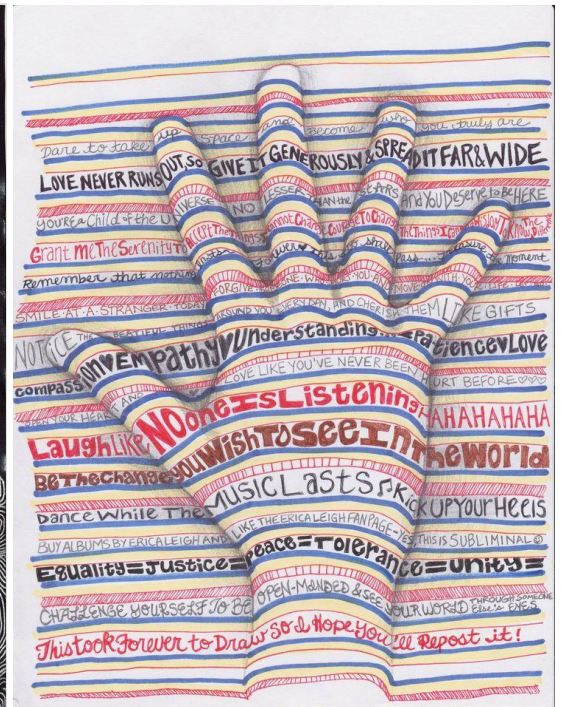 Dare to take up space and become who you truly are
LOVE NEVER RUNS OUT, SO GIVE IT GENEROUSLY & SPREAD IT FAR & WIDE
YOU'RE a Child of the UNIVERSE NO LESSER THAN the STARS And You Deserve to Be HERE
Grant Me The Serenity To Accept The Things I Cannot Change Courage To Change The Things I Can The
Remember that nothing lasts forever this shall pass... the moment
FORGIVE ANYONE WHO YOU
SMILE AT A STRANGER TODAY
NOTICE THE BEAUTIFUL THINGS AROUND YOU EVERYDAY, AND CHERISH THEM LIKE GIFTS
compassion ♥ Empathy ♥ Understanding Patience ♥ Love
OPEN YOUR HEART AND LOVE LIKE YOU'VE NEVER BEEN HURT BEFORE ♡♡♡
Laugh Like NO one IS Listening HAHAHAHAHA
Be The Change you Wish To See In The World
Dance While The MUSIC Lasts KICK UP YOUR Heels
BUY ALBUMS BY ERICA LEIGH AND LIKE THE ERICA LEIGH FAN PAGE-YES THIS IS SUBLIMINAL ☺
Equality = Justice = Peace = Tolerance = Unity =
CHALLENGE YOURSELF TO BE OPEN-MINDED & SEE YOUR WORLD THROUGH SOMEONE Else's EYES
This took Forever to Draw So I Hope You'll Repost it!